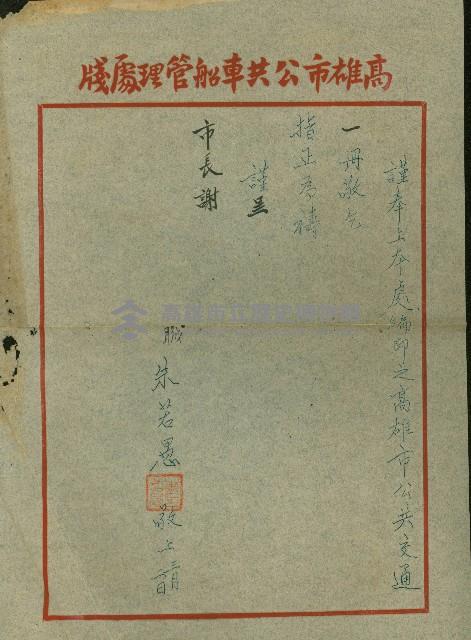 高雄市公共車船管理處牋
謹奉上本處編印之高雄市公共交通
一冊敬乞
指正為禱
謹呈
市長謝
職朱若愚敬上三月
高雄市立歷史博物館